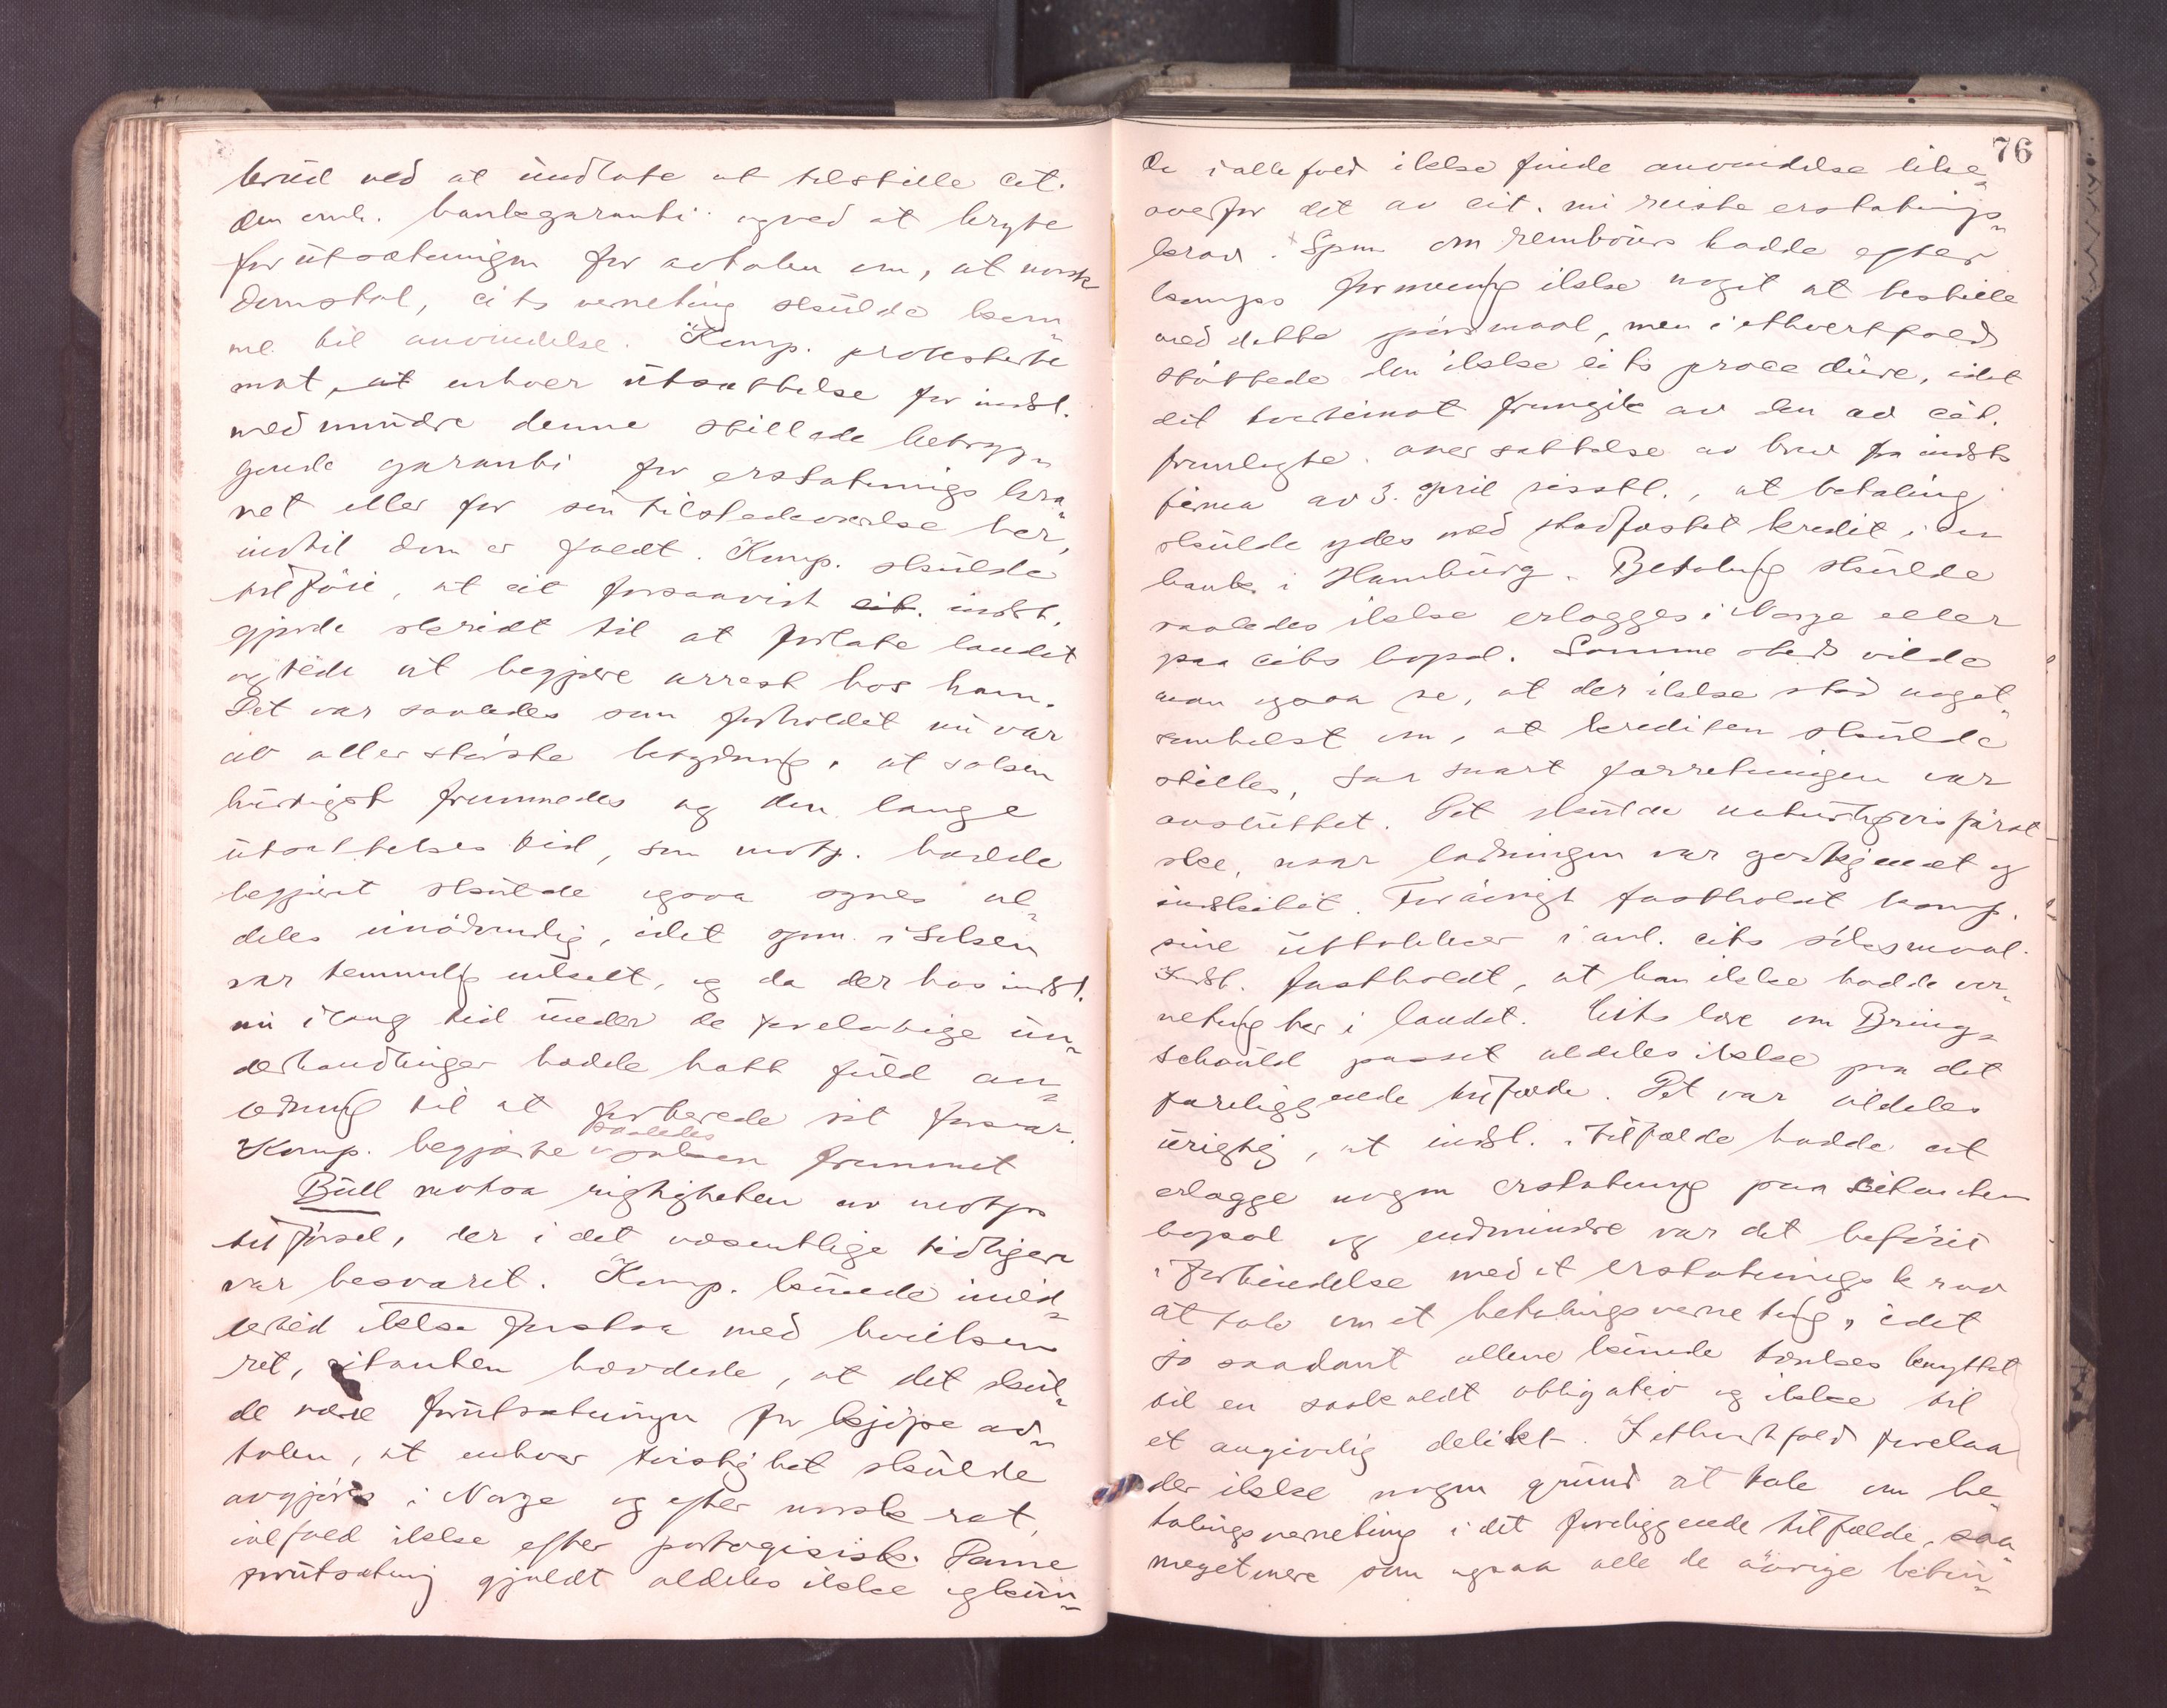 brud ved at undlate at tilstille cit.
den omh. bankgaranti og ved at bryte
forutsætningen for avtalen om, at norsk
domstol, cits verneting skulde kom¬
me til anvendelse. Komp. protesterte
mot, at enhver utsættelse for indst.
medmindre denne stillede betryg¬
gende garanti for erstatningskra¬
vet eller for sin tilstedeværelse her,
indtil dom er faldt. Komp. skulde
tilföie, at cit forsaavidt cit. indst.
gjorde skridt til at forlate landet
vilde at begjære arrest hos ham.
Det var saaledes som forholdet nu var
av allerstörste betydning, at saken
hurtigst fremmedes og den lange
utsættelses tid, som motp. hadde
begjært skulde ogsaa synes al¬
deles unödvendig, idet spm. i saken
var temmelig enkelt, og da der hos indst.
nu i lang tid under de forelöbige un¬
derhandlinger hadde hatt fuld an¬
ledning til at forberede sit forsvar.
Komp. begjærte saaledes saken fremmet
Bull motsa rigtigheten av motps
tilförsel, der i det væsentlige tidligere
var besvaret. Komp. kunde imid¬
lertid ikke forstaa med hvilken
ret, citanten hævdede, at det skul¬
de være forutsætningen for kjöpeav¬
talen, at enhver tvistighet skulde
avgjöres i Norge og efter norsk ret,
ialfald ikke efter portogisisk. Denne
forutsætning gjaldt aldeles ikke og kun¬
76
de i alle fald ikke finde anvendelse like¬
overfor det av cit. nu reiste erstatnings¬
krav. Spm om rembours hadde efter
komps formening ikke noget at bestille
med dette spörsmaal, men i ethvertfald
støttede den ikke cits procedure, idet
det tvertimot fremgik av den av cit.
fremlagte oversættelse av brev fra indsts
firma av 3. april sisstl., at betaling
skulde ydes med stadfæstet kredit i en
bank i Hamburg. Betaling skulde
saaledes ikke erlægges i Norge eller
paa cits bopæl. Samme sted vilde
man ogsaa se, at der ikke stod noget¬
somhelst om, at krediten skulde
stilles, saa snart forretningen var
avsluttet. Det skulde naturligvis först
ske, naar ladningen var godkjendt og
indskibet. Forövrigt fastholdt komp.
sine uttalelser i anl. cits söksmaal.
Indst. fastholdt, at han ikke hadde ver¬
neting her i landet. Cits lære om Bring¬
schuld passet aldeles ikke paa det
foreliggende tilfælde. Det var aldeles
urigtig, at indst. i tilfælde hadde at
erlægge nogen erstatning paa citanten
bopæl og endmindre var det beföiet
i forbindelse med et erstatningskrav
at tale om et betalingsverneting, idet
jo saadant allene kunde tænkes knyttet
til en saakaldt obligation og ikke til
et angivelig delikt. I ethvertfald forelaa
der ikke nogen grund at tale om be¬
talingsverneting i det foreliggende tilfælde, saa¬
meget mere som ogsaa alle de övrige betin¬